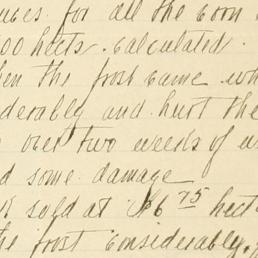 for all the corn
00 hects. calculated.
hen the frost came wh
iderably and hurt the
over two weeks of w
d some damage
sold at $6 75 hect
the frost considerably.